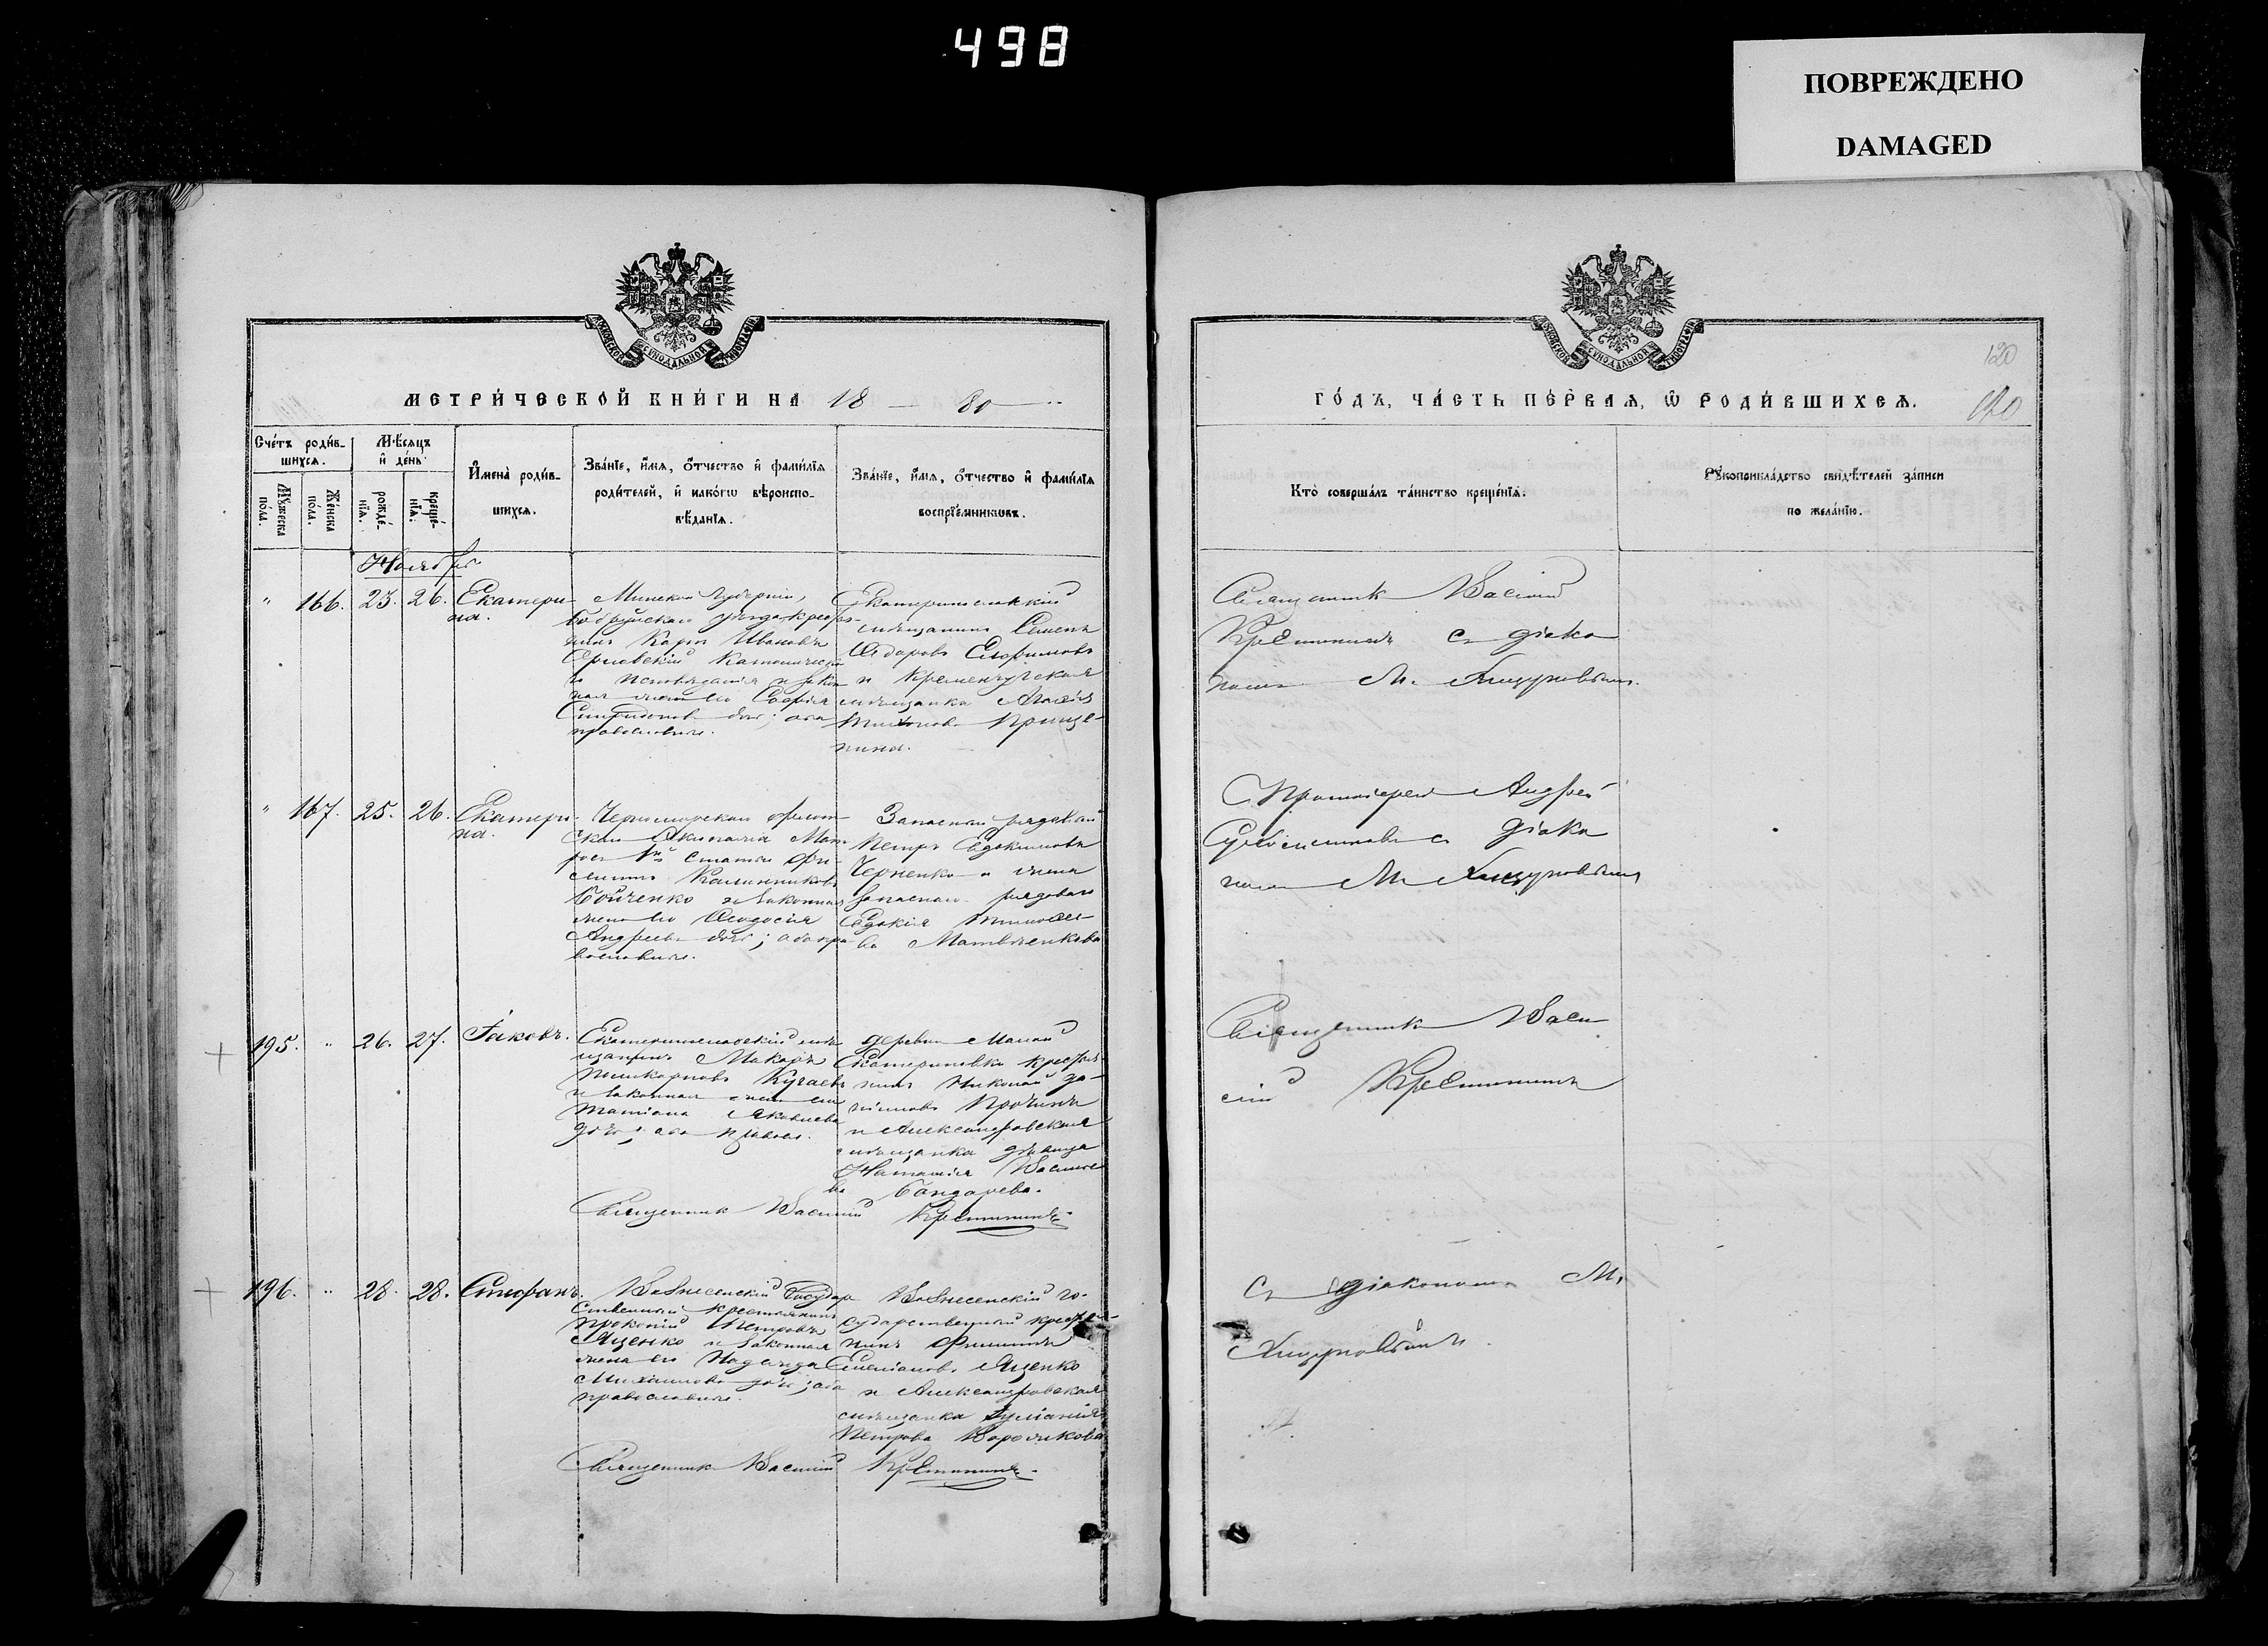 498
ПОВРЕЖДЕНО
DAMAGED
МЕТРИ́ЧЕСКОЙ КНИ́ГИ НА 18 — 80 —
Сче́тъ роди́в-
шихсѧ.
Мѣ́сѧцъ
и҆ де́нь
Му́жеска
по́ла.
Же́нска
по́ла.
рожде́-
нїѧ.
креще́-
нїѧ.
И҆мена̀ роди́в-
шихсѧ.
Зва́нїе, и҆́мѧ, ѻ҆́тчество и҆ фами́лїѧ
роди́телей, и҆ како́гѡ вѣроиспо-
вѣ́данїѧ.
Зва́нїе, и҆́мѧ, ѻ҆́тчество и҆ фами́лїѧ
воспрїе́мникѡвъ.
Ноябрь
" 166. 23. 26. Екатери-
на.
Минской губерніи,
Бобруйскаго уѣзда крестья-
нинъ Карлъ Ивановъ
Католическа-
го исповѣданія и закон-
ная жена его Софія
Спиридонова дочь; оба
православные.
Екатеринославскій
мѣщанинъ Семенъ
Ѳедоровъ Ефимовъ
и Кременчугская
мѣщанка
" 167. 25. 26. Екатери-
на.
Черноморскаго флот-
скаго Экипажа Мат-
росъ 1й статьи Фи-
липпъ Калинниковъ
Бойченко и законная
жена его Ѳеодосія
Андреева дочь; оба пра-
вославные.
Запасный рядовой
Петръ Евдокимовъ
Черненко и жена
запаснаго рядоваго
Евдокія Тимофее-
ва Матвѣенкова
195. " 26. 27. Іаковъ.
Екатеринославскій мѣ-
щанинъ Макаръ
Поликарповъ Кучаевъ
и законная жена его
Татіана Яковлева
дочь; оба правосл.
деревни Малой
Екатериновки крестья-
нинъ Николай Да-
ниловъ Прочинъ
и Александровская
мѣщанка дѣвица
Наталія Василье-
ва Бондарева.
Священникъ Василій Крестининъ.
196. " 28. 28. Стефанъ.
Вознесенскій Государ-
ственный крестьянинъ
Прокопій Петровъ
Яценко и законная
жена его Надежда
Михаилова дочь; оба
православные.
Вознесенскій го-
сударственный крестья-
нинъ Филиппъ
Емеліановъ Яценко
и Александровская
мѣщанка Іуліанія
Петрова Ворожикова
Священникъ Василій Крестининъ.
120
ГО́ДЪ, ЧА́СТЬ ПЕ́РВАѦ, Ѡ҆ РОДИ́ВШИХСѦ.
120
Кто̀ соверша́лъ та́инство креще́нїѧ.
Рꙋкоприкла́дство свидѣ́телей за́писи
по жела́нїю.
Священникъ Василій
Крестининъ съ діако-
номъ М. Хицуновымъ.
Протоіерей Андрей
съ діако-
номъ М. Хицуновымъ
Священникъ Васи-
лій Крестининъ
Съ діакономъ М.
Хицуновымъ.